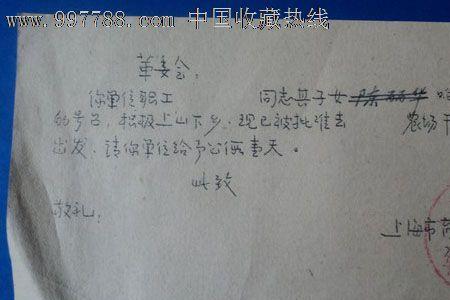 www.997788.com 中国收藏热线
革委会:
你单位职工 同志其子女 响
的号召,积极上山下乡,现已被批准去 农场干
出发,请你单位给予公假壹天。
此致
敬礼!
上海市